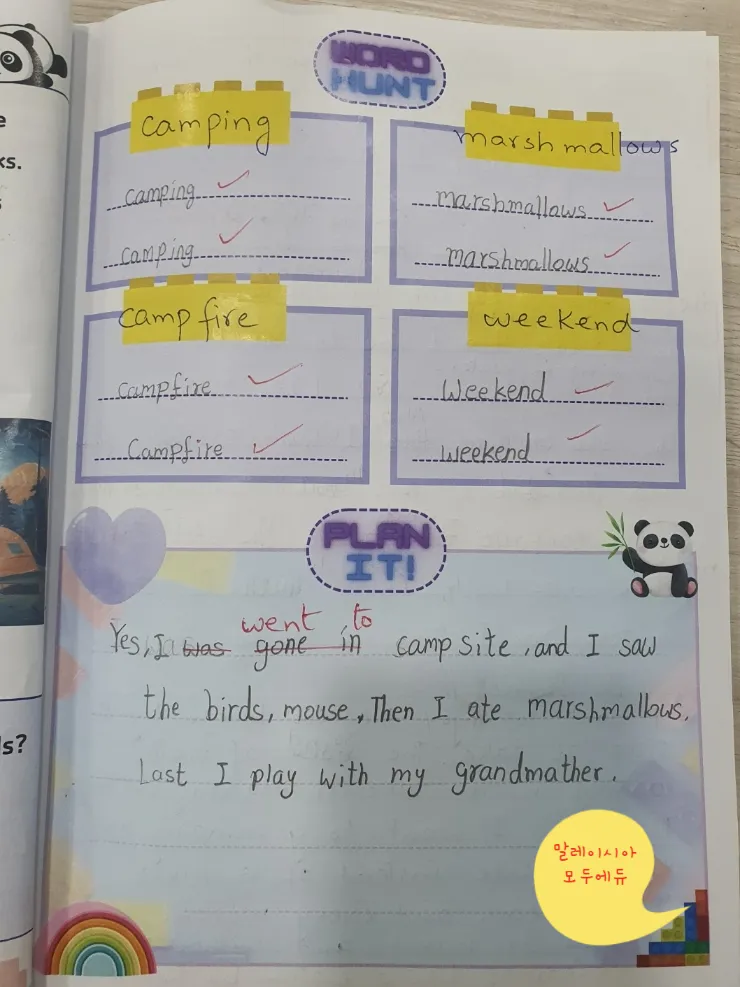 WORD
HUNT
camping
camping
camping
marshmallows
marshmallows
marshmallows
campfire
campfire
Campfire
weekend
Weekend
weekend
PLAN
IT!
went to
Yes, I was gone in camp site, and I saw
the birds, mouse, Then I ate marshmallows.
Last I play with my grandmather.
말레이시아
모두에듀
ks.
ls?